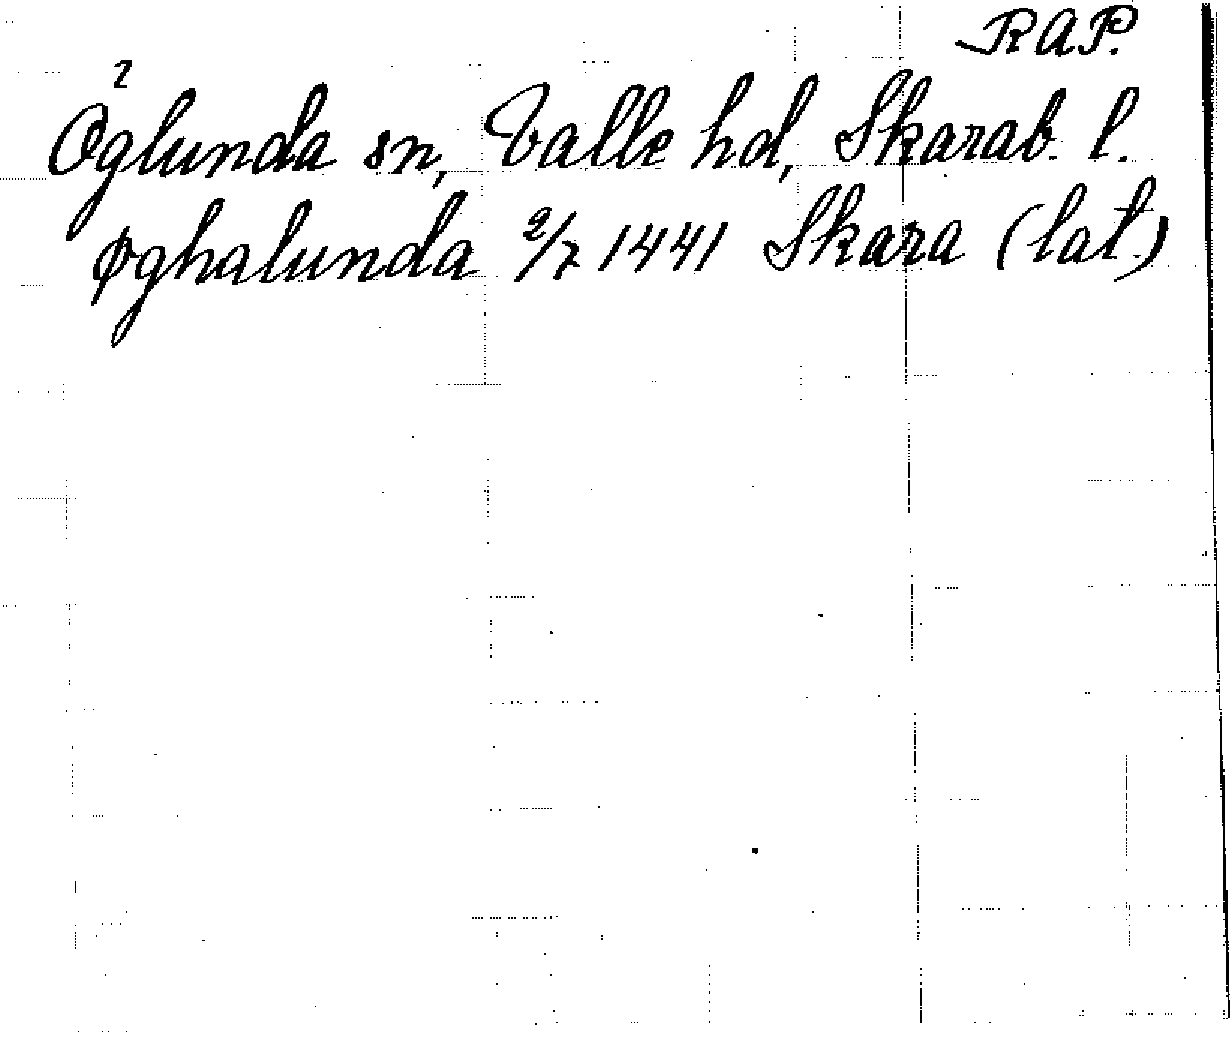 RAP.
Öglunda sn, Valle hd, Skarab. l.
Øghalunda 2/7 1441 Skara (lat.)